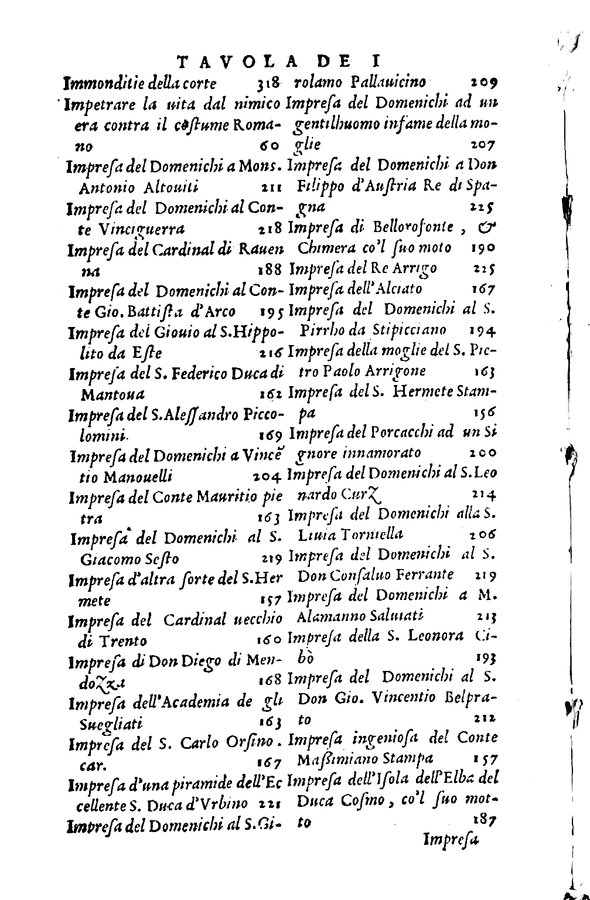 TAVOLA DE I
Immonditie della corte 318
Impetrare la uita dal nimico
era contra il coſtume Roma-
no 60
Impreſa del Domenichi a Mons.
Antonio Altouiti 211
Impreſa del Domenichi al Con-
te Vinciguerra 218
Impreſa del Cardinal di Rauen
na 188
Impreſa del Domenichi al Con-
te Gio. Battiſta d'Arco 195
Impreſa del Giouio al S.Hippo-
lito da Eſte 216
Impreſa del S. Federico Duca di
Mantoua 162
Impreſa del S.Aleſſandro Picco-
lomini. 169
Impreſa del Domenichi a Vincẽ
tio Manouelli 204
Impreſa del Conte Mauritio pie
tra 163
Impreſa del Domenichi al S.
Giacomo Seſto 219
Impreſa d'altra ſorte del S.Her
mete 157
Impreſa del Cardinal uecchio
di Trento 160
Impreſa di Don Diego di Men-
doZza 168
Impreſa dell'Academia de gli
Suegliati 163
Impreſa del S. Carlo Orſino.
car. 167
Impreſa d'una piramide dell'Ec
cellente S. Duca d'Vrbino 221
Impreſa del Domenichi al S.Gi-
rolamo Pallauicino 209
Impreſa del Domenichi ad un
gentilhuomo infame della mo-
glie 207
Impreſa del Domenichi a Don
Filippo d'Auſtria Re di Spa-
gna 225
Impreſa di Belloroſonte, &
Chimera co'l ſuo moto 190
Impreſa del Re Arrigo 225
Impreſa dell'Alciato 167
Impreſa del Domenichi al S.
Pirrho da Stipicciano 194
Impreſa della moglie del S. Pie-
tro Paolo Arrigone 163
Impreſa del S. Hermete Stam-
pa 156
Impreſa del Porcacchi ad un Si
gnore innamorato 200
Impreſa del Domenichi al S.Leo
nardo CurZ 214
Impreſa del Domenichi alla S.
Liuia Torniella 206
Impreſa del Domenichi al S.
Don Conſaluo Ferrante 219
Impreſa del Domenichi a M.
Alamanno Saluiati 213
Impreſa della S. Leonora Ci-
bò 193
Impreſa del Domenichi al S.
Don Gio. Vincentio Belpra-
to 212
Impreſa ingenioſa del Conte
Maſſimiano Stampa 157
Impreſa dell'Iſola dell'Elba del
Duca Coſmo, co'l ſuo mot-
to 187
Impreſa